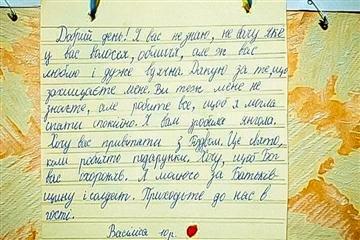 Добрий день! Я вас не знаю, не бачу яке
у вас волосся, обличчя, але я вас
люблю і дуже вдячна Дякую за те, що
захищаєте мене. Ви теж мене не
знаєте, але робите все, щоб я могла
спати спокійно. Я вам зробила янгола.
Хочу вас привітати з Різдвом. Це свято,
коли роблять подарунки. Хочу, щоб Бог
вас охороняв. Я молюсь за Батьків-
щину і солдат. Приходьте до нас в
гості.
Василіса 10р.